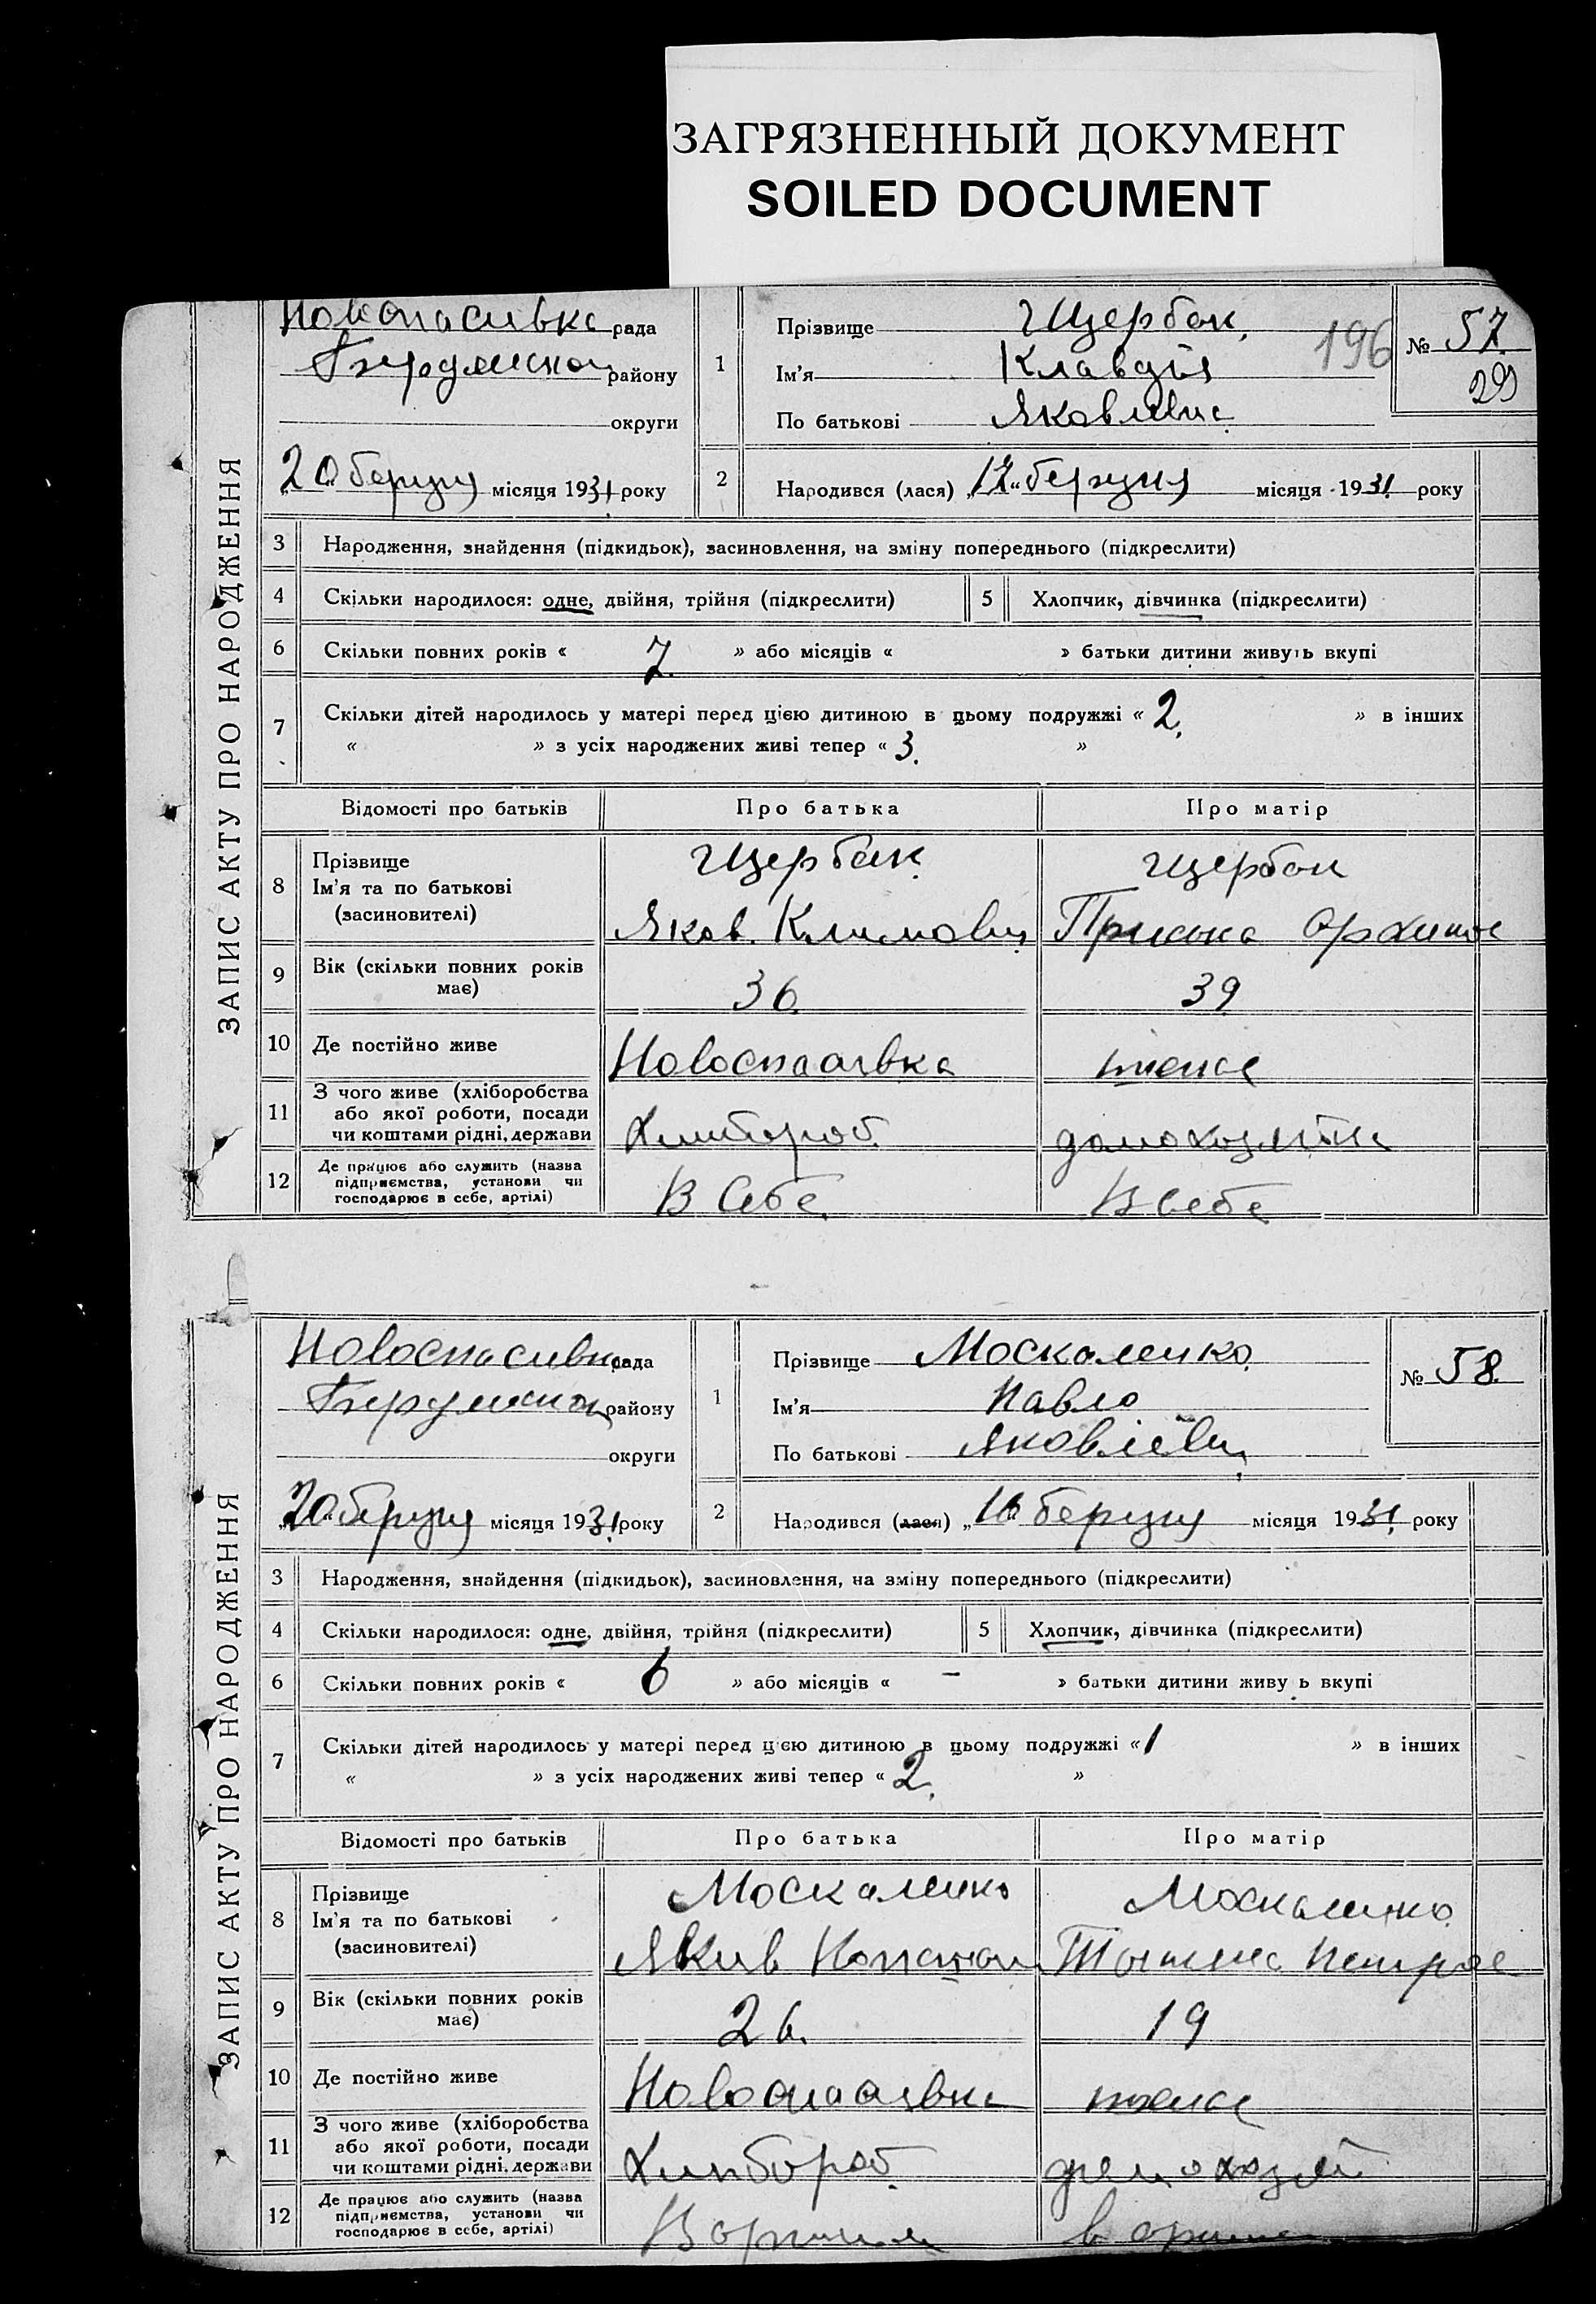 ЗАГРЯЗНЕННЫЙ ДОКУМЕНТ
SOILED DOCUMENT
ЗАПИС АКТУ ПРО НАРОДЖЕННЯ
Новоспасивка рада
району
округи
20 березня місяця 1931 року
1
Прізвище Щербак
Ім'я Клавдія
По батькові Яковлівна
196
№ 57
29
2
Народився (лася) „17“ березня місяця 1931 року
3 Народження, знайдення (підкидьок), засиновлення, на зміну попереднього (підкреслити)
4 Скільки народилося: одне, двійня, трійня (підкреслити) 5 Хлопчик, дівчинка (підкреслити)
6 Скільки повних років « 7 » або місяців « » батьки дитини живуть вкупі
7 Скільки дітей народилось у матері перед цією дитиною в цьому подружжі « 2 » в інших
« » з усіх народжених живі тепер « 3 »
Відомості про батьків Про батька Про матір
8 Прізвище
Ім'я та по батькові
(засиновителі)
Щербак
Яков Климович
Щербак
Приська
9 Вік (скільки повних років має) 36 39
10 Де постійно живе Новоспасівка
11 З чого живе (хліборобства
або якої роботи, посади
чи коштами рідні, держави
Хлибороб
12 Де працює або служить (назва
підприємства, установи чи
господарює в себе, артілі)
В Себе В себе
ЗАПИС АКТУ ПРО НАРОДЖЕННЯ
Новоспасивка рада
району
округи
„20“ березня місяця 1931 року
1
Прізвище Москаленко
Ім'я Павло
По батькові
№ 58
2
Народився (лася) „16 березня місяця 1931 року
3 Народження, знайдення (підкидьок), засиновлення, на зміну попереднього (підкреслити)
4 Скільки народилося: одне, двійня, трійня (підкреслити) 5 Хлопчик, дівчинка (підкреслити)
6 Скільки повних років « 6 » або місяців « – » батьки дитини живу ь вкупі
7 Скільки дітей народилось у матері перед цією дитиною в цьому подружжі « 1 » в інших
« » з усіх народжених живі тепер « 2 »
Відомості про батьків Про батька Про матір
8 Прізвище
Ім'я та по батькові
(засиновителі)
Москаленко
Якив
Москаленко
9 Вік (скільки повних років має) 26 19
10 Де постійно живе Новоспасівка
11 З чого живе (хліборобства
або якої роботи, посади
чи коштами рідні, держави
Хлибороб
12 Де працює або служить (назва
підприємства, установи чи
господарює в себе, артілі)